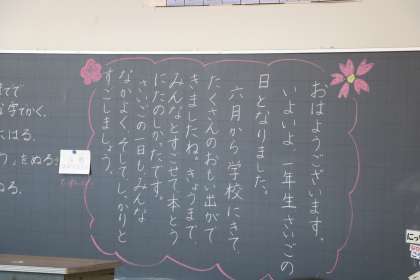 おはようございます。
いよいよ一年生さいごの
日となりました。
六月から学校にきて
たくさんのおもい出がで
きましたね。きょうまで、
みんなとすごせて本とう
にたのしかったです。
さいごの一日も、みんな
なかよく、そしてしっかりと
すごしましょう。
てで
な字でかく。
にはる。
つ」をぬる。
ぬる。